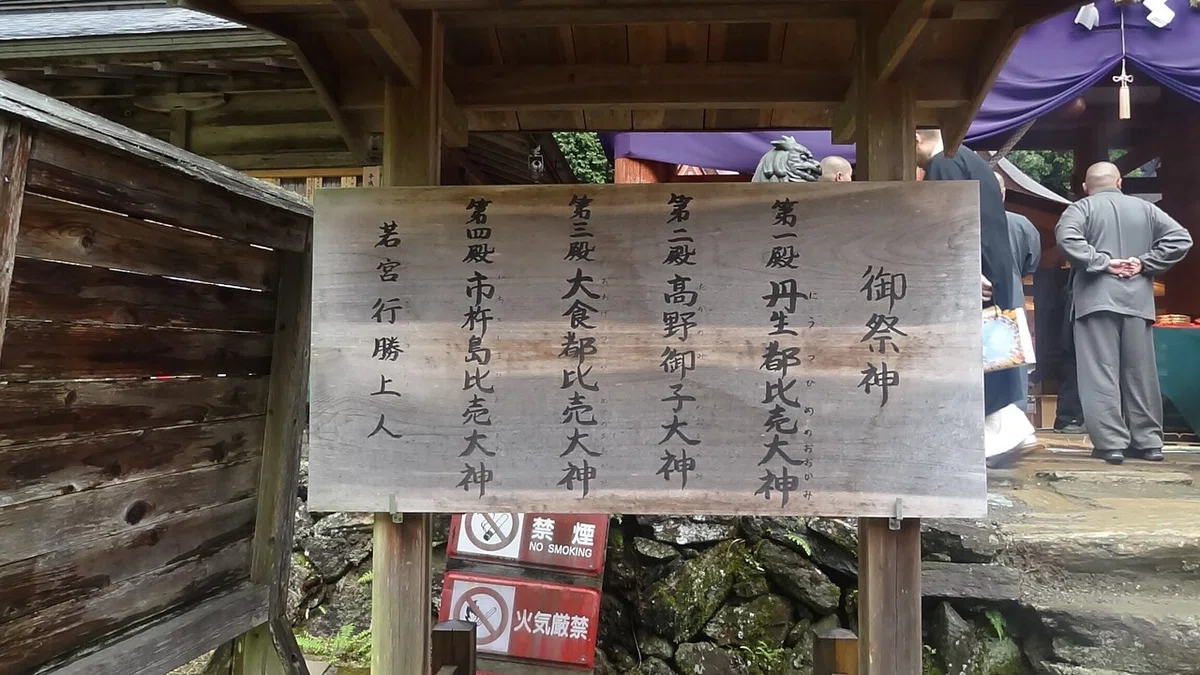 御祭神
第一殿 丹生都比売大神
にうつひめのおおかみ
第二殿 高野御子大神
第三殿 大食都比売大神
第四殿 市杵島比売大神
若宮 行勝上人
禁煙
NO SMOKING
火気厳禁